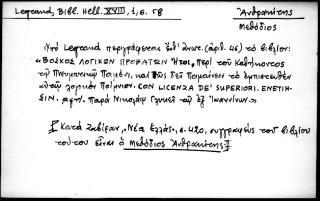 Legrand, Bibl. Hell. XVIII, 1, σ. 58
Ἀνθρακίτης
Μεθόδιος
Ὑπὸ Legrand περιγράφεται ὑπ' (ἀριθ. 46) τὸ βιβλίον:
"ΒΟΣΚΟΣ ΛΟΓΙΚΩΝ ΠΡΟΒΑΤΩΝ Ἤτοι, περὶ τοῦ Καθήκοντος
τῶν Πνευματικῶν Ποιμένων, καὶ Πῶς δεῖ Ποιμαίνειν τὸ ἐμπιστευθὲν
αὐτῶν λογικὸν Ποίμνιον. CON LICENZA DE' SUPERIORI. ΕΝΕΤΙΗ-
ΣΙΝ. Παρὰ Νικολάῳ Γλυκεῖ τῷ ἐξ Ἰωαννίνων"
[Κατὰ Ζαβίραν, "Νέα Ἑλλάς", σ. 420, συγγραφεὺς τοῦ βιβλίου
τούτου εἶναι ὁ Μεθόδιος Ἀνθρακίτης]